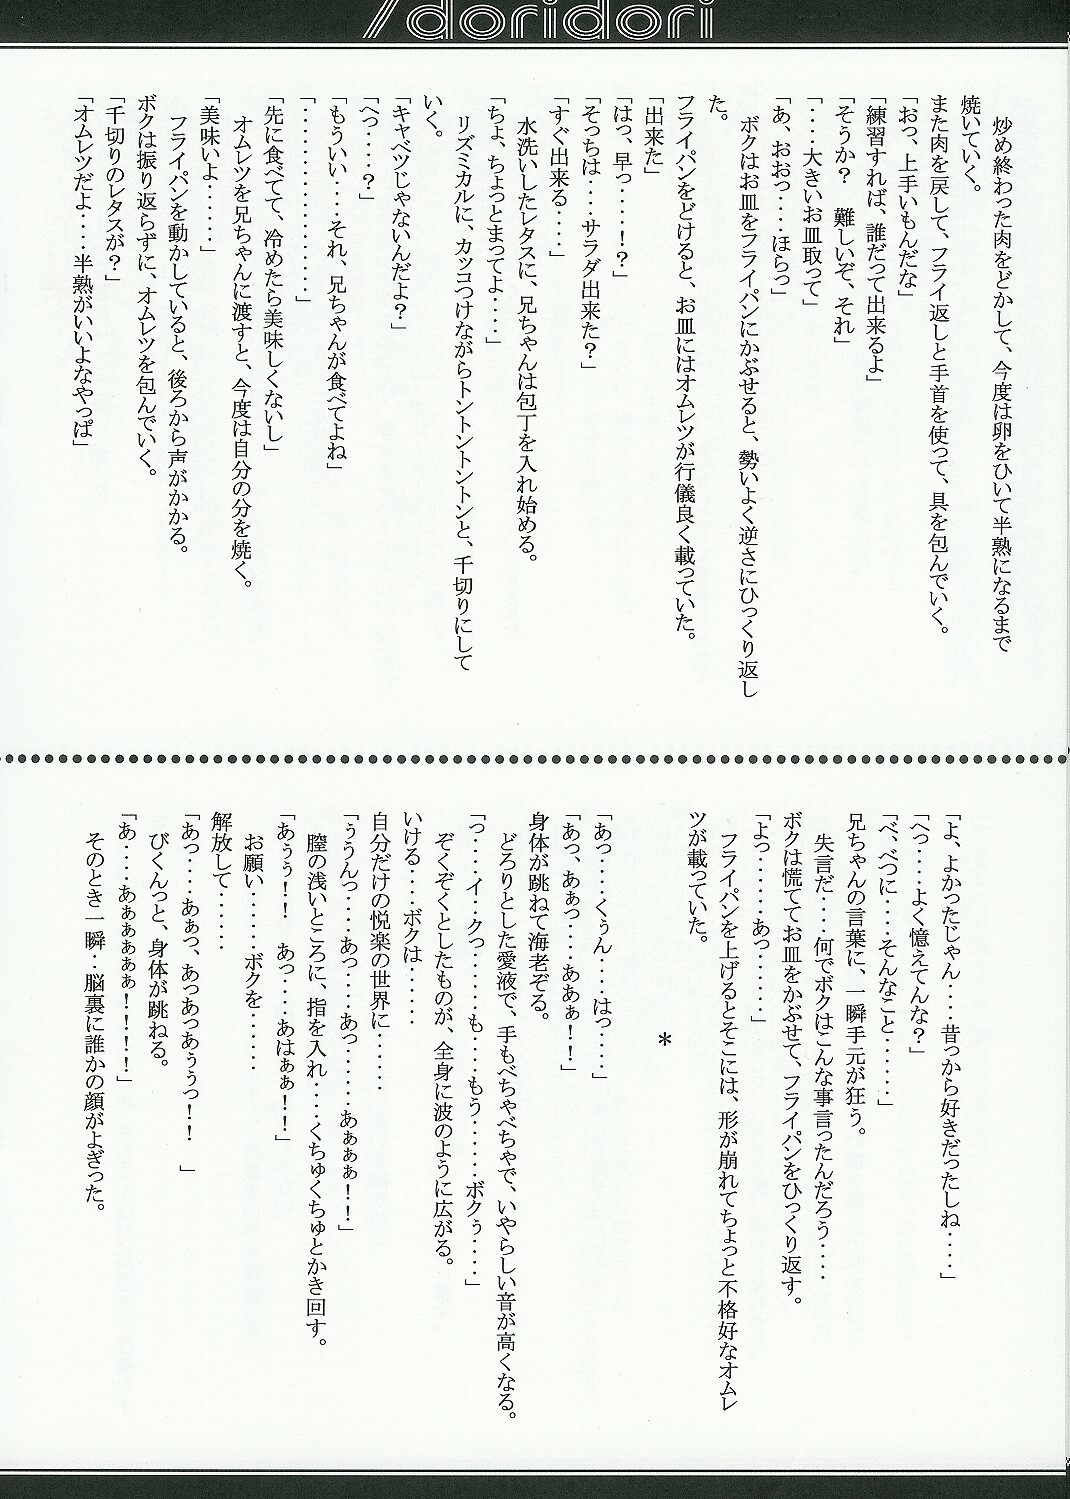 /doridori
炒め終わった肉をどかして、今度は卵をひいて半熟になるまで
焼いていく。
また肉を戻して、フライ返しと手首を使って、具を包んでいく。
「おっ、上手いもんだな」
「練習すれば、誰だって出来るよ」
「そうか?　難しいぞ、それ」
「‥‥大きいお皿取って」
「あ、おおっ‥‥ほらっ」
ボクはお皿をフライパンにかぶせると、勢いよく逆さにひっくり返し
た。
フライパンをどけると、お皿にはオムレツが行儀良く載っていた。
「出来た」
「はっ、早っ‥‥!?」
「そっちは‥‥サラダ出来た?」
「すぐ出来る‥‥」
水洗いしたレタスに、兄ちゃんは包丁を入れ始める。
「ちょ、ちょっとまってよ‥‥」
リズミカルに、カッコつけながらトントントントンと、千切りにして
いく。
「キャベツじゃないんだよ?」
「へっ‥‥?」
「もういい‥‥それ、兄ちゃんが食べてよね」
「‥‥‥‥‥‥‥‥」
「先に食べてて、冷めたら美味しくないし」
オムレツを兄ちゃんに渡すと、今度は自分の分を焼く。
「美味いよ‥‥‥」
フライパンを動かしていると、後ろから声がかかる。
ボクは振り返らずに、オムレツを包んでいく。
「千切りのレタスが?」
「オムレツだよ‥‥半熟がいいよなやっぱ」
「よ、よかったじゃん‥‥昔っから好きだったしね‥‥」
「へっ‥‥よく憶えてんな?」
「べ、べつに‥‥そんなこと‥‥‥」
兄ちゃんの言葉に、一瞬手元が狂う。
失言だ‥‥何でボクはこんな事言ったんだろう‥‥
ボクは慌ててお皿をかぶせて、フライパンをひっくり返す。
「よっ‥‥‥あっ‥‥‥」
フライパンを上げるとそこには、形が崩れてちょっと不格好なオムレ
ツが載っていた。
*
「あっ‥‥くぅん‥‥はっ‥‥」
「あっ、あぁっ‥‥ああぁ!!」
身体が跳ねて海老ぞる。
どろりとした愛液で、手もべちゃべちゃで、いやらしい音が高くなる。
「っ‥‥イ‥クっ‥‥‥も‥‥もう‥‥‥ボクぅ‥‥」
ぞくぞくとしたものが、全身に波のように広がる。
いける‥‥ボクは‥‥‥
自分だけの悦楽の世界に‥‥‥
「ぅうんっ‥‥あっ‥‥あっ‥‥‥あぁぁぁ!!」
膣の浅いところに、指を入れ‥‥くちゅくちゅとかき回す。
「あぅぅ!!　あっ‥‥あはぁぁ!!」
お願い‥‥‥ボクを‥‥‥
解放して‥‥‥
「あっ‥‥あぁっ、あっあっあうぅっ!!　」
びくんっと、身体が跳ねる。
「あ‥‥あぁぁぁぁぁ!!!!」
そのとき一瞬‥脳裏に誰かの顔がよぎった。